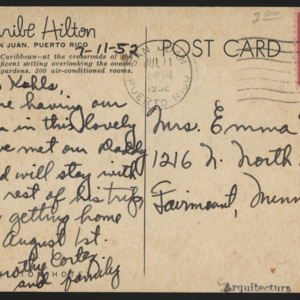 ribe Hilton
N JUAN, PUERTO RICO
7-11-52
Caribbean—at the crossroads of the
ficent setting overlooking the ocean,
gardens, 300 air-conditioned rooms.
Kohls,
re having our
n in this lovely
ve met our Daddy
d will stay with
rest of his trip
getting home
August 1st.
rothy Cortez
and family
POST CARD
SAN JUAN
JUL 11
1952
PUERTO RICO
Mrs. Emma
1216 N. North
Fairmount, Minn
Arquitectura